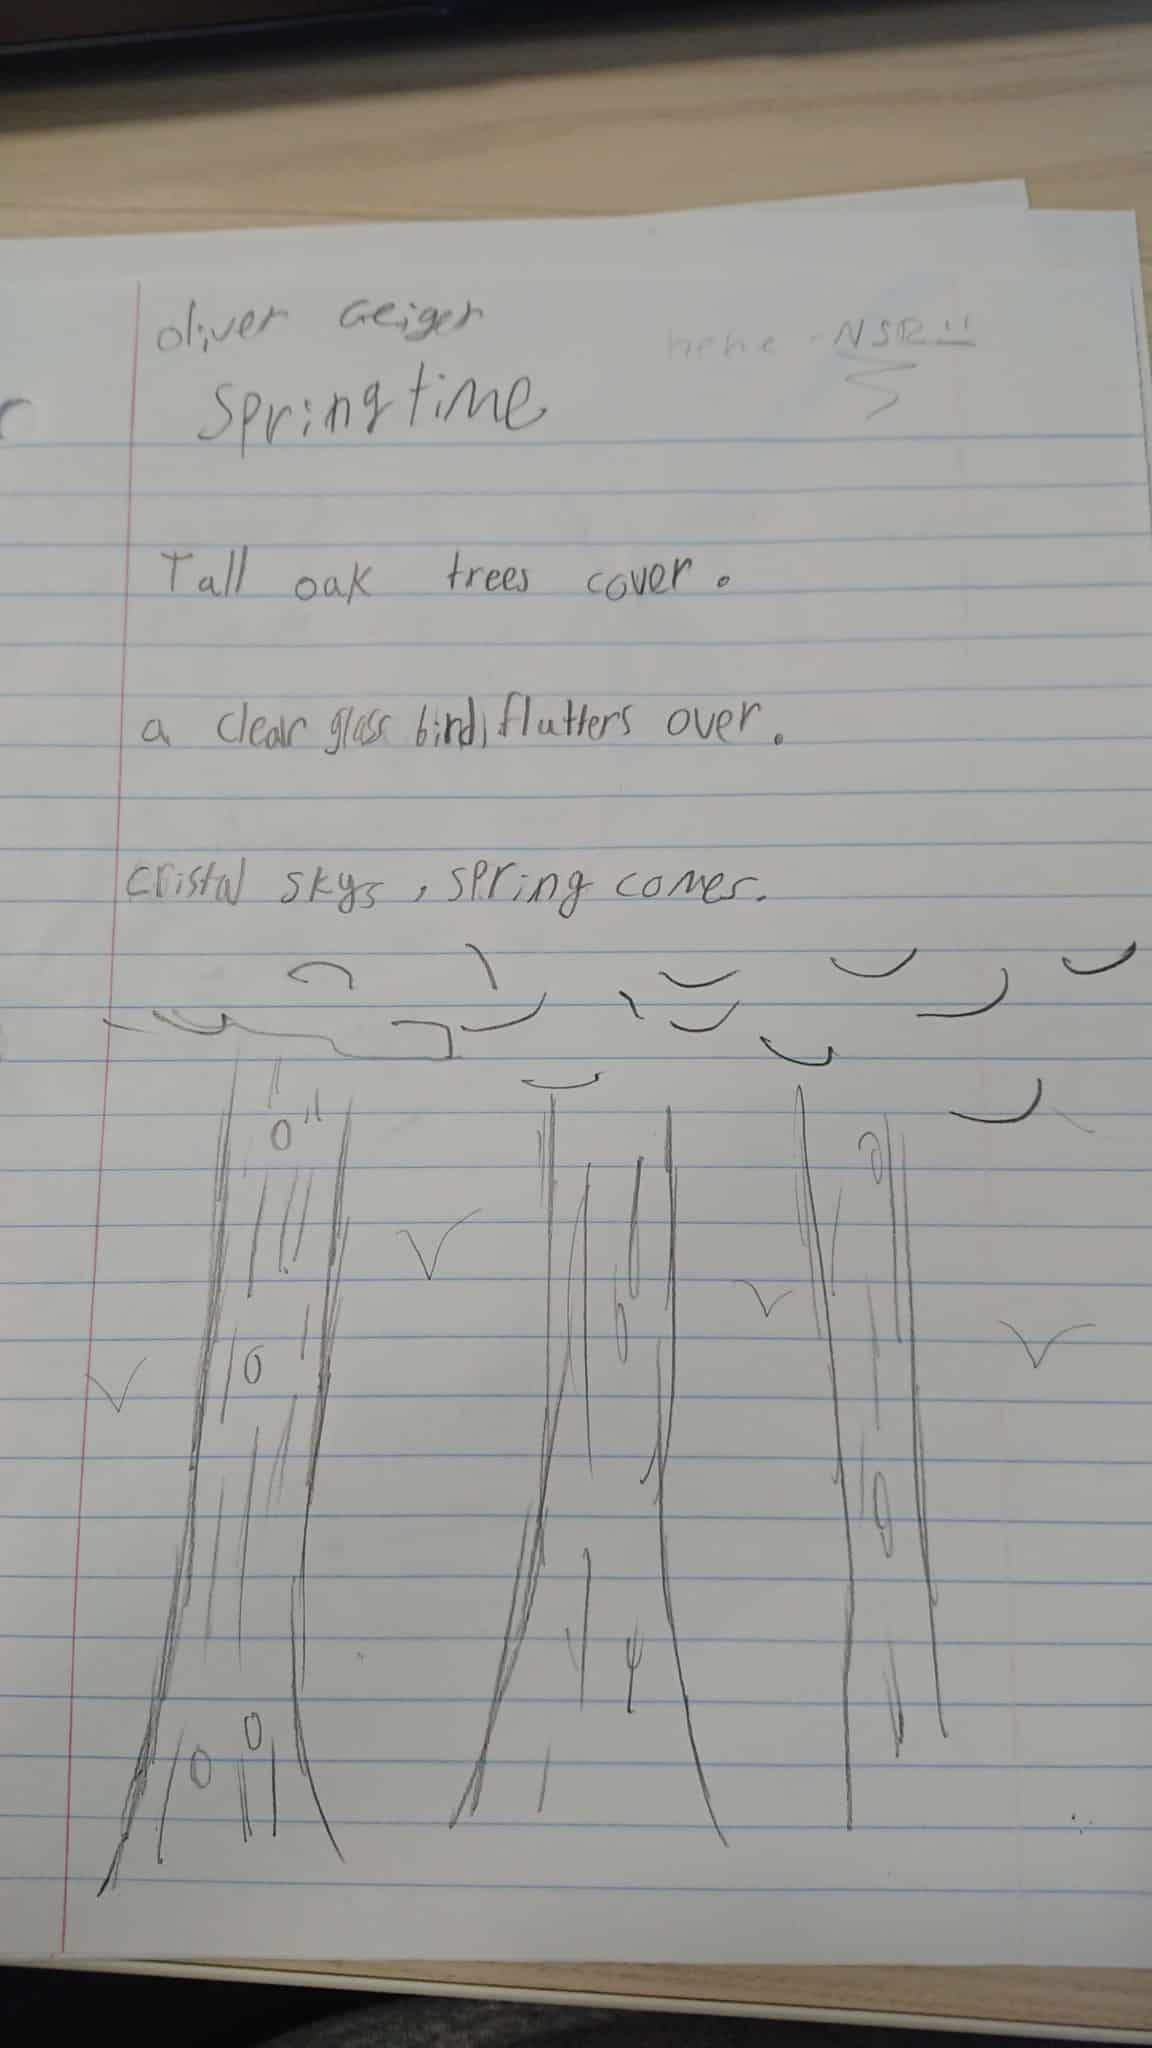 oliver Geiger
hehe - NSR !!
Springtime
Tall oak trees cover.
a clear glass bird, flutters over.
cristal skys, spring comes.